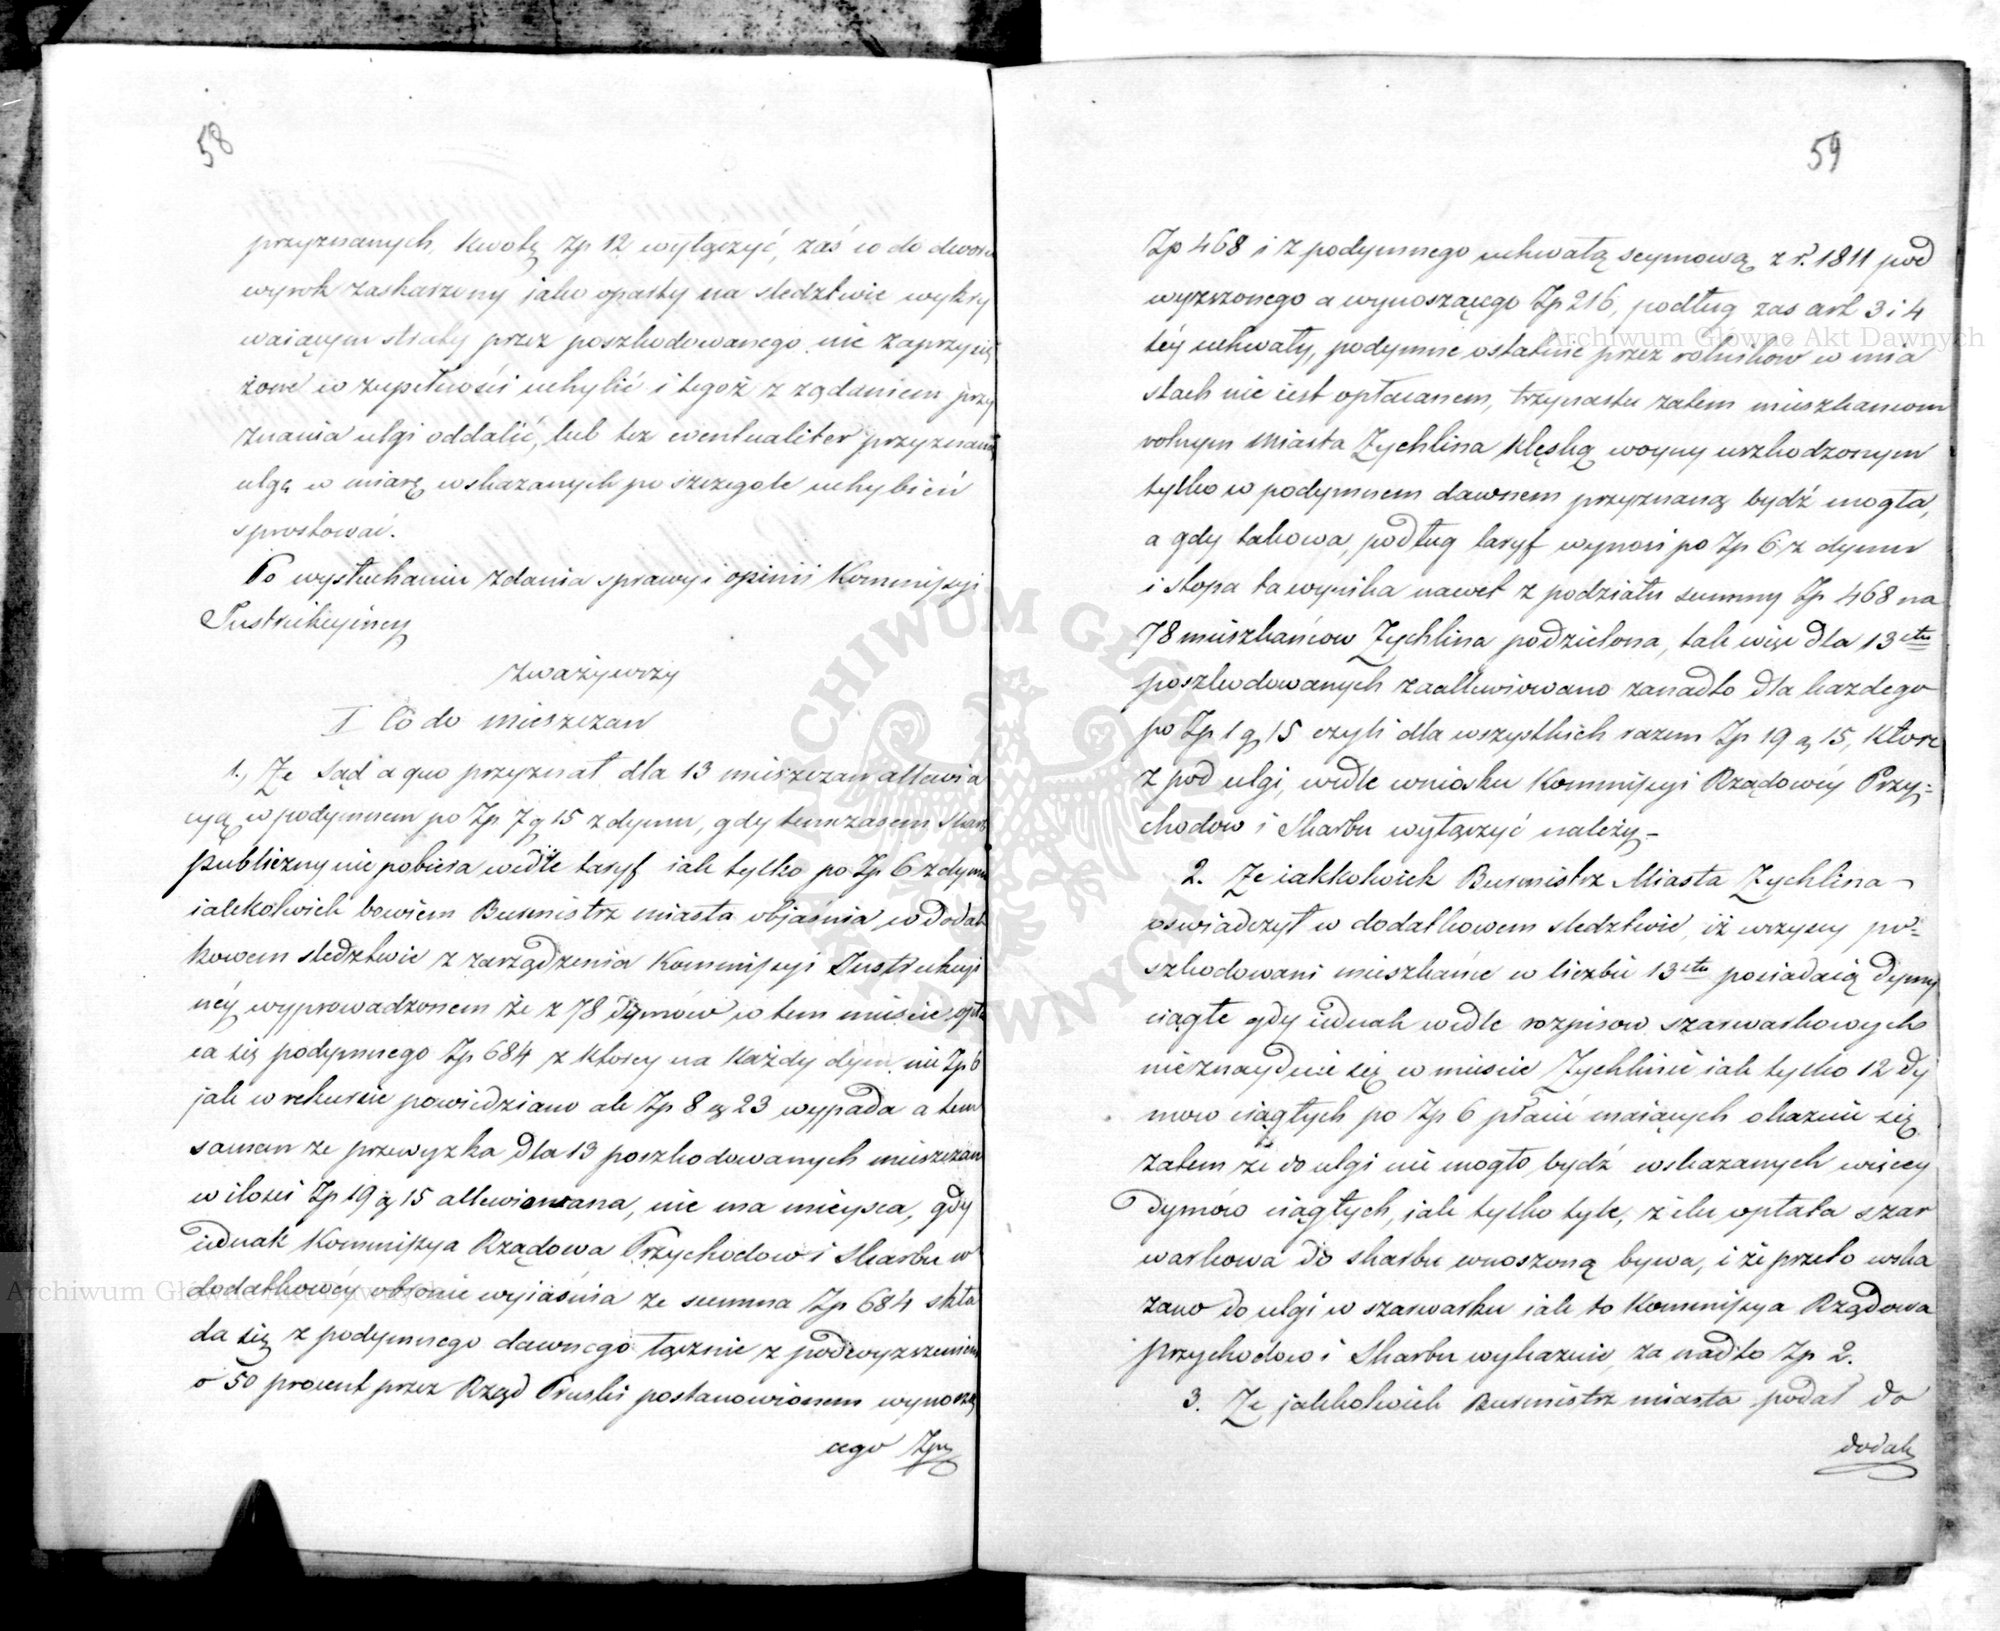 58
przyznanych, kwotę Zp 12 wyłączyć, zaś co do dworu
wyrok zaskarzony jako oparty na sledztwie wykry
waiącym straty przez poszkodowanego nie zaprzysię
żone w zupełności uchylić i tegoż z ządaniem przy
znania ulgi oddalić, lub tez eventualiter przyznaną
ulgę w miarę wskazanych po szczegole uchybień
sprostować.
Po wysłuchaniu zdania sprawy i opinii Kommissyi
Instrukcyiney
zważywszy
I Co do mieszczan
1., Ze Sąd a quo przyznał dla 13 mieszczan allewia
cyą w podymnem po Zp 7 g 15 z dymu, gdy tymczasem Skarb
publiczny nie pobiera wedle taryf iak tylko po Zp 6 z dymu
iakkolwiek bowiem Burmistrz miasta objaśnia w dodat
kowem sledztwie z zarządzenia Kommissyi Instrukcyi
néy wyprowadzonem że z 78 dymów w tem mieście opła
ca się podymnego Zp 684 z ktorey na każdy dym nie Zp 6
jak w rekursie powiedziano ale Zp 8 g 23 wypada a tem
samem ze przewyzka dla 13 poszkodowanych mieszczan
w ilości Zp 19 g 15 allewiowana, nie ma mieysca, gdy
iednak Kommissya Rządowa Przychodow i Skarbu w
dodatkowéy obronie wyiaśnia ze summa Zp 684 skła
da się z podymnego dawnego łącznie z podwyzszeniem
o 50 procent przez Rząd Pruski postanowionem wynoszą
cego Zp
59
Zp 468 i z podymnego uchwałą seymową z r. 1811 pod
wyzszonego a wynoszącego Zp 216, podług zas art 3 i 4
téy uchwały, podymne ostatnie przez rolnikow w mia
stach nie iest opłacanem, trzynastu zatem mieszkancom
rolnym miasta Zychlina klęską woyny uszkodzonym
tylko w podymnem dawnem przyznaną bydź mogła,
a gdy takowa, podług taryf wynosi po Zp 6 z dymu
i stopa ta wynika nawet z podziału summy Zp 468 na
78 mieszkańcow Zychlina podzielona, tak więc dla 13stu
poszkodowanych zaallewiowano zanadto dla kazdego
po Zp 1 g 15 czyli dla wszystkich razem Zp 19 g 15, które
z pod ulgi, wedle wniosku Kommissyi Rządowéy Przy-
chodow i Skarbu wyłączyć należy -
2. Ze iakkolwiek Burmistrz Miasta Zychlina
oswiadczył w dodatkowem sledztwie, iż wszyscy po-
szkodowani mieszkańce w liczbie 13stu posiadaią dymy
ciągłe gdy iednak wedle rozpisow szarwarkowych
nieznayduie się w miescie Zychlinie iak tylko 12 dy
mow ciągłych po Zp 6 płacić maiących okazuie się
zatem ze do ulgi nie mogło bydź wskazanych więcey
dymów ciągłych, jak tylko tyle, z ilu opłata szar
warkowa do skarbu wnoszoną bywa, i że przeto wska
zano do ulgi w szarwarku iak to Kommissya Rządowa
przychodow i Skarbu wykazuie za nadto Zp 2.
3. Ze jakkolwiek Burmistrz miasta podał do
dodat